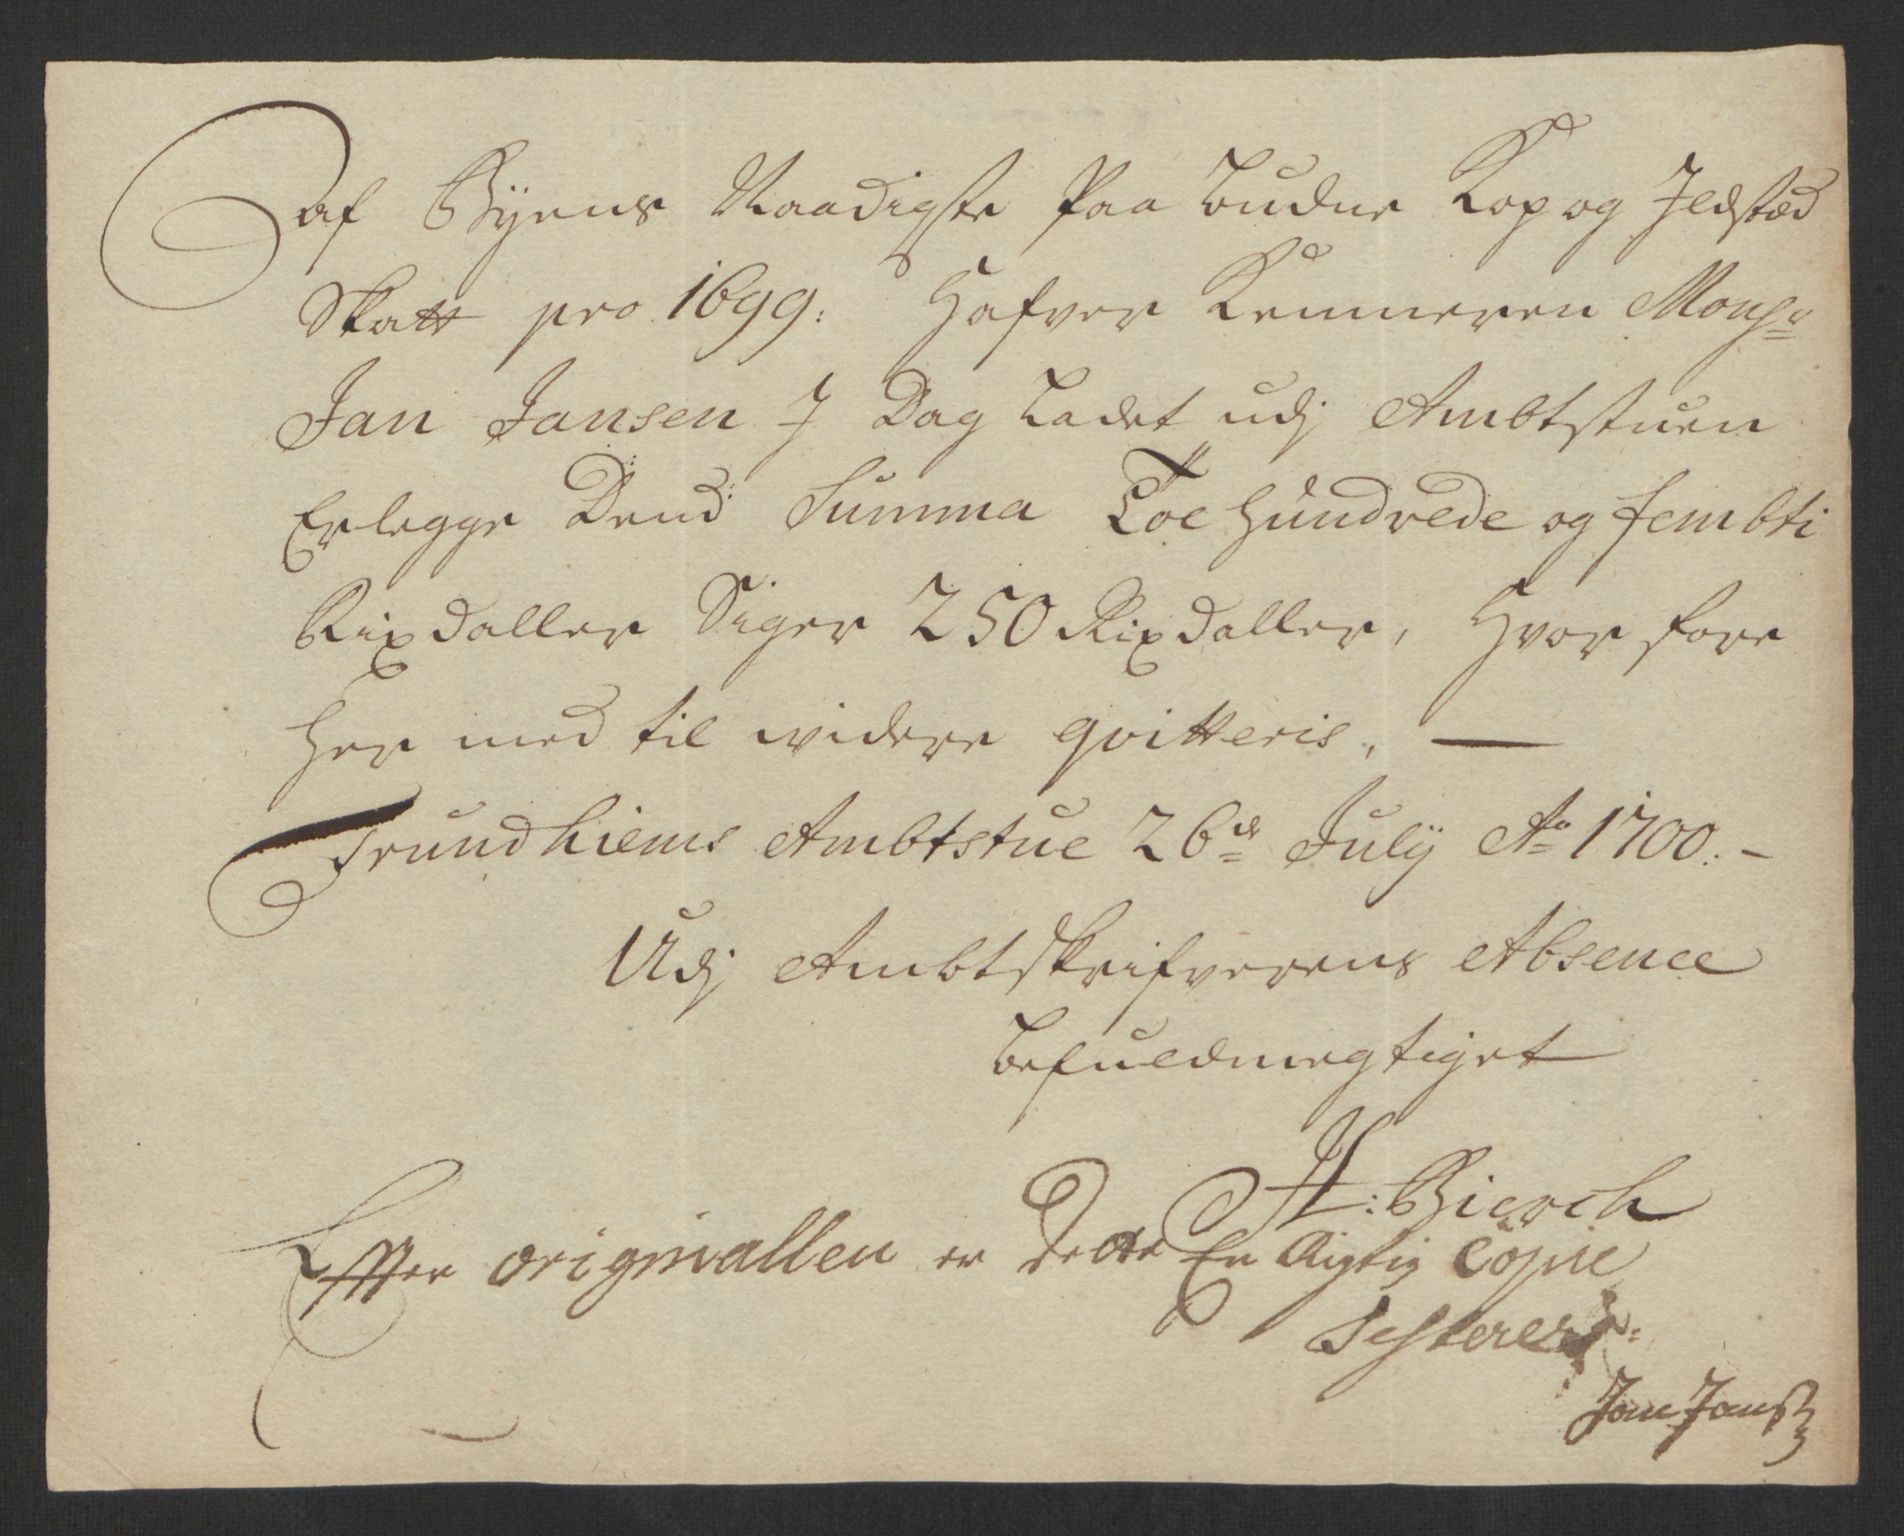 af Byens Naadigste Paa budne Kop og Jldstæd
Skatt pro 1699: Hafver Kemneren Monsr
Jan Jansen J Dag Ladet udj Ambtstuen
Erlegge Dend Summa Toe hundrede og fembti
Rixdaller Siger 250 Rixdaller, Hvor fore
her med til widere qvitteris, —
Trundhiems Ambtstue 26de Julij Ao 1700. –
Udj Ambtskrifverens Absence
befuldmegtiget
H: Bierch
Effter originallen er Dette En Rigtig Copie
Testerer:
Jan Jansen